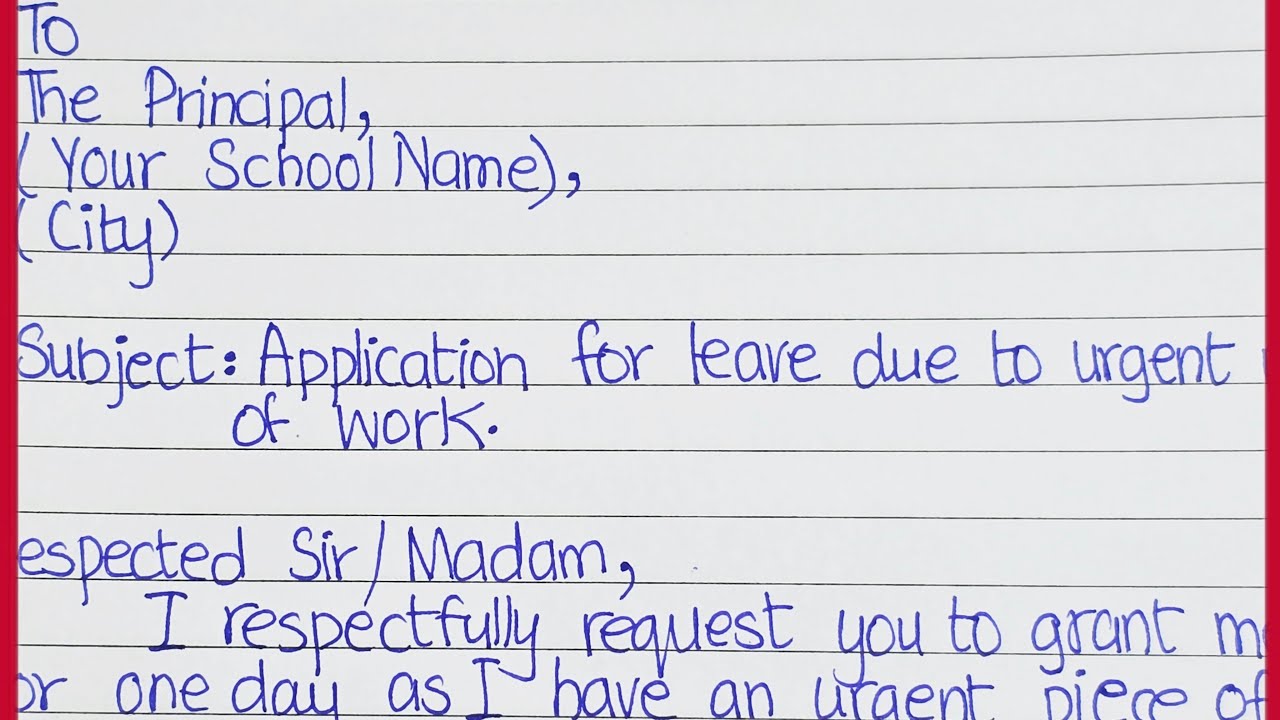 To
The Principal,
(Your School Name),
(City)
Subject: Application for leave due to urgent
of work.
espected Sir/Madam,
I respectfully request you to grant m
or one day as I have an urgent piece of